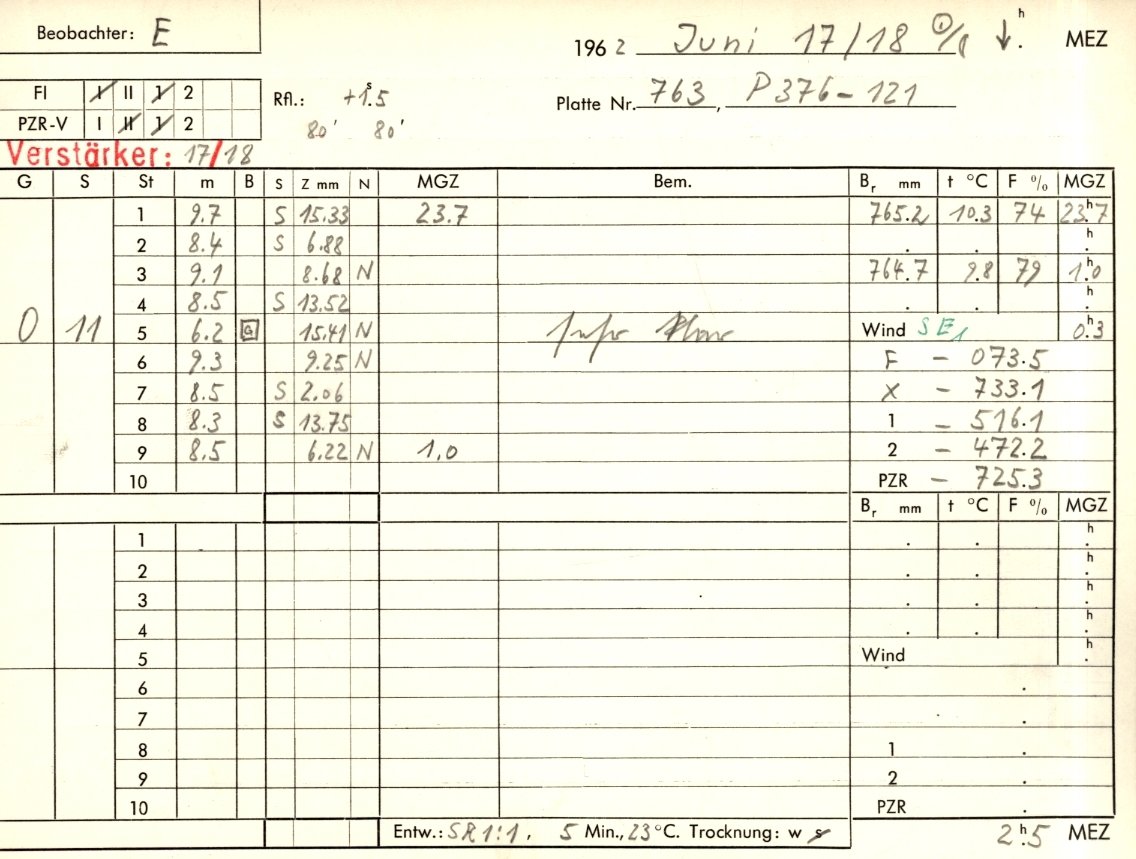 Beobachter: E
1962 Juni 17/18 ↓. h MEZ
FI I II 1 2
Rfl.: +1s.5
Platte Nr. 763, P376-121
PZR-V I II 1 2
80' 80'
Verstärker: 17/18
G S St m B S Z mm N MGZ Bem. Br mm t °C F % MGZ
1 9.7 S 15.33 23.7 765.2 10.3 74 23h7
2 8.4 S 6.88 . . h.
3 9.1 8.68 N 764.7 9.8 79 1h.0
4 8.5 S 13.52 . . h.
0 11 5 6.2 G 15.41 N Wind SE1 0h.3
6 9.3 9.25 N F - 073.5
7 8.5 S 2.06 X - 733.1
8 8.3 S 13.75 1 - 516.1
9 8.5 6.22 N 1.0 2 - 472.2
10 PZR - 725.3
Br mm t °C F % MGZ
1 . . h.
2 . . h.
3 . . h.
4 . . h.
5 Wind h.
6 .
7 .
8 1 .
9 2 .
10 PZR .
Entw.: SR 1:1, 5 Min., 23°C. Trocknung: w s
2h.5 MEZ